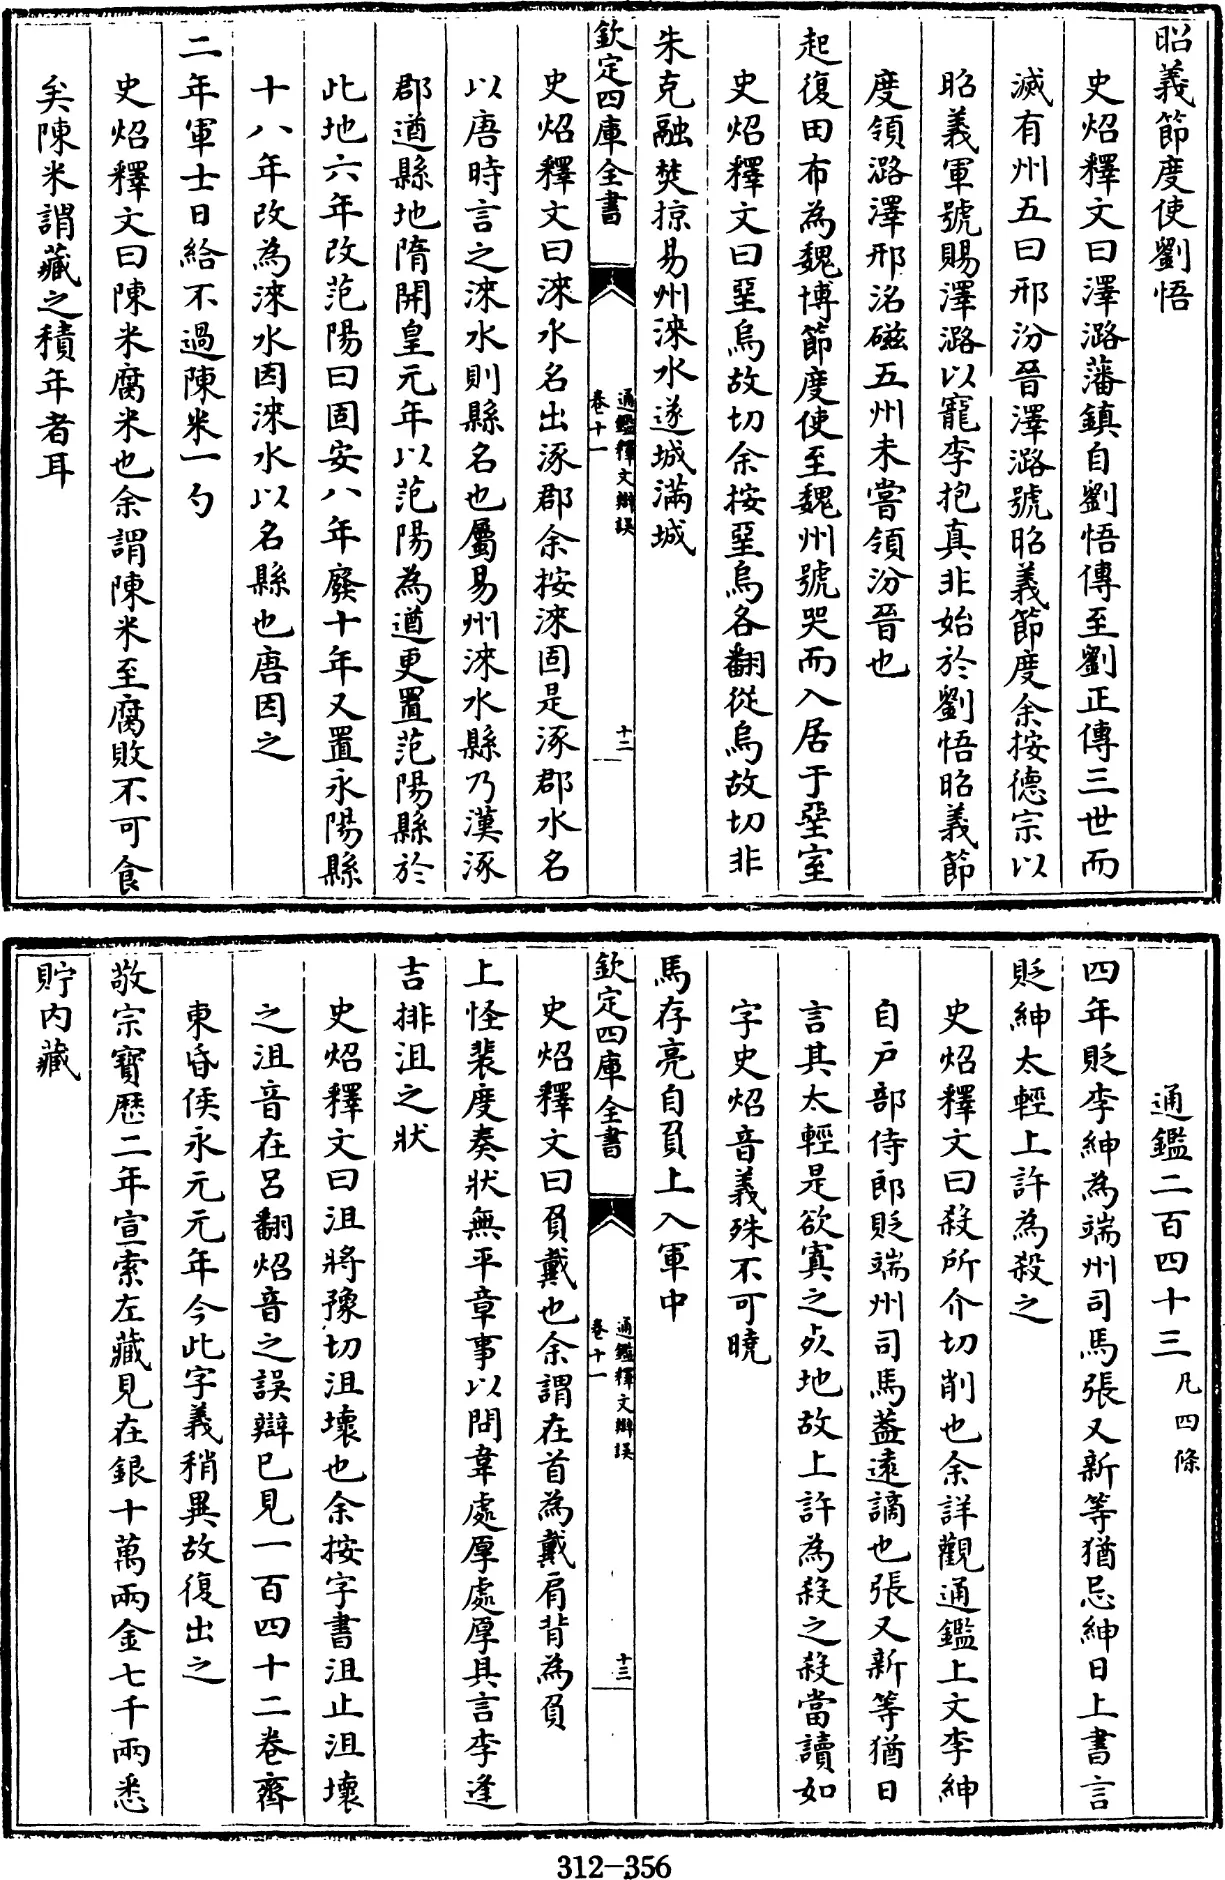 昭義節度使劉悟
史炤釋文曰澤潞藩鎮自劉悟傳至劉正傳三世而
滅有州五曰邢汾晉澤潞號昭義節度余按德宗以
昭義軍號賜澤潞以寵李抱真非始於劉悟昭義節
度領潞澤邢洺磁五州未嘗領汾晉也
起復田布為魏博節度使至魏州號哭而入居于堊室
史炤釋文曰堊烏故切余按堊烏各翻從烏故切非
朱克融焚掠易州淶水遂城滿城
欽定四庫全書
通鑑釋文辯誤
卷十一
十二
史炤釋文曰淶水名出涿郡余按淶固是涿郡水名
以唐時言之淶水則縣名也屬易州淶水縣乃漢涿
郡遒縣地隋開皇元年以范陽為遒更置范陽縣於
此地六年改范陽曰固安八年廢十年又置永陽縣
十八年改為淶水因淶水以名縣也唐因之
二年軍士日給不過陳米一勺
史炤釋文曰陳米腐米也余謂陳米至腐敗不可食
矣陳米謂藏之積年者耳
通鑑二百四十三凡四條
四年貶李紳為端州司馬張又新等猶忌紳日上書言
貶紳太輕上許為殺之
史炤釋文曰殺所介切削也余詳觀通鑑上文李紳
自戶部侍郎貶端州司馬蓋遠謫也張又新等猶日
言其太輕是欲寘之死地故上許為殺之殺當讀如
字史炤音義殊不可曉
馬存亮自負上入軍中
欽定四庫全書
通鑑釋文辯誤
卷十一
十三
史炤釋文曰負戴也余謂在首為戴肩背為負
上怪裴度奏狀無平章事以問韋處厚處厚具言李逢
吉排沮之狀
史炤釋文曰沮將豫切沮壞也余按字書沮止沮壞
之沮音在呂翻炤音之誤辯已見一百四十二卷齊
東昏侯永元元年今此字義稍異故復出之
敬宗寶歷二年宣索左藏見在銀十萬兩金七千兩悉
貯内藏
312-356